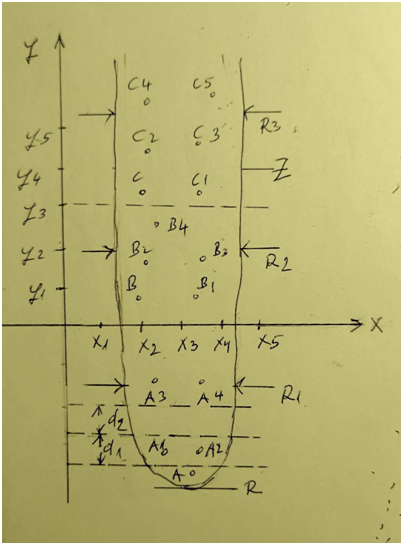 y
C4 C5
R3
y5 C2 C3
y4 C C1 Z
y3
B4
y2 B2 B3 R2
y1 B B1
X
X1 X2 X3 X4 X5
A3 A4 R1
d2
d1 A6 A2
A R